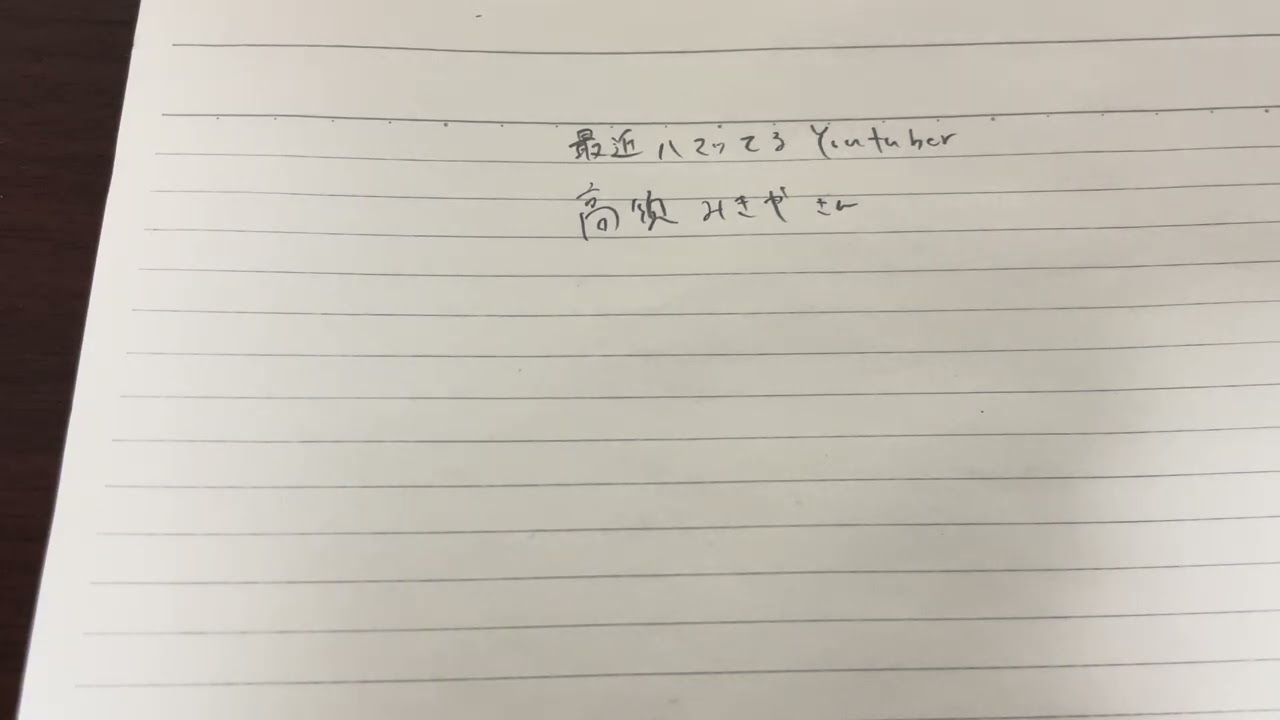 最近ハマってるYoutuber
高須みきやさん